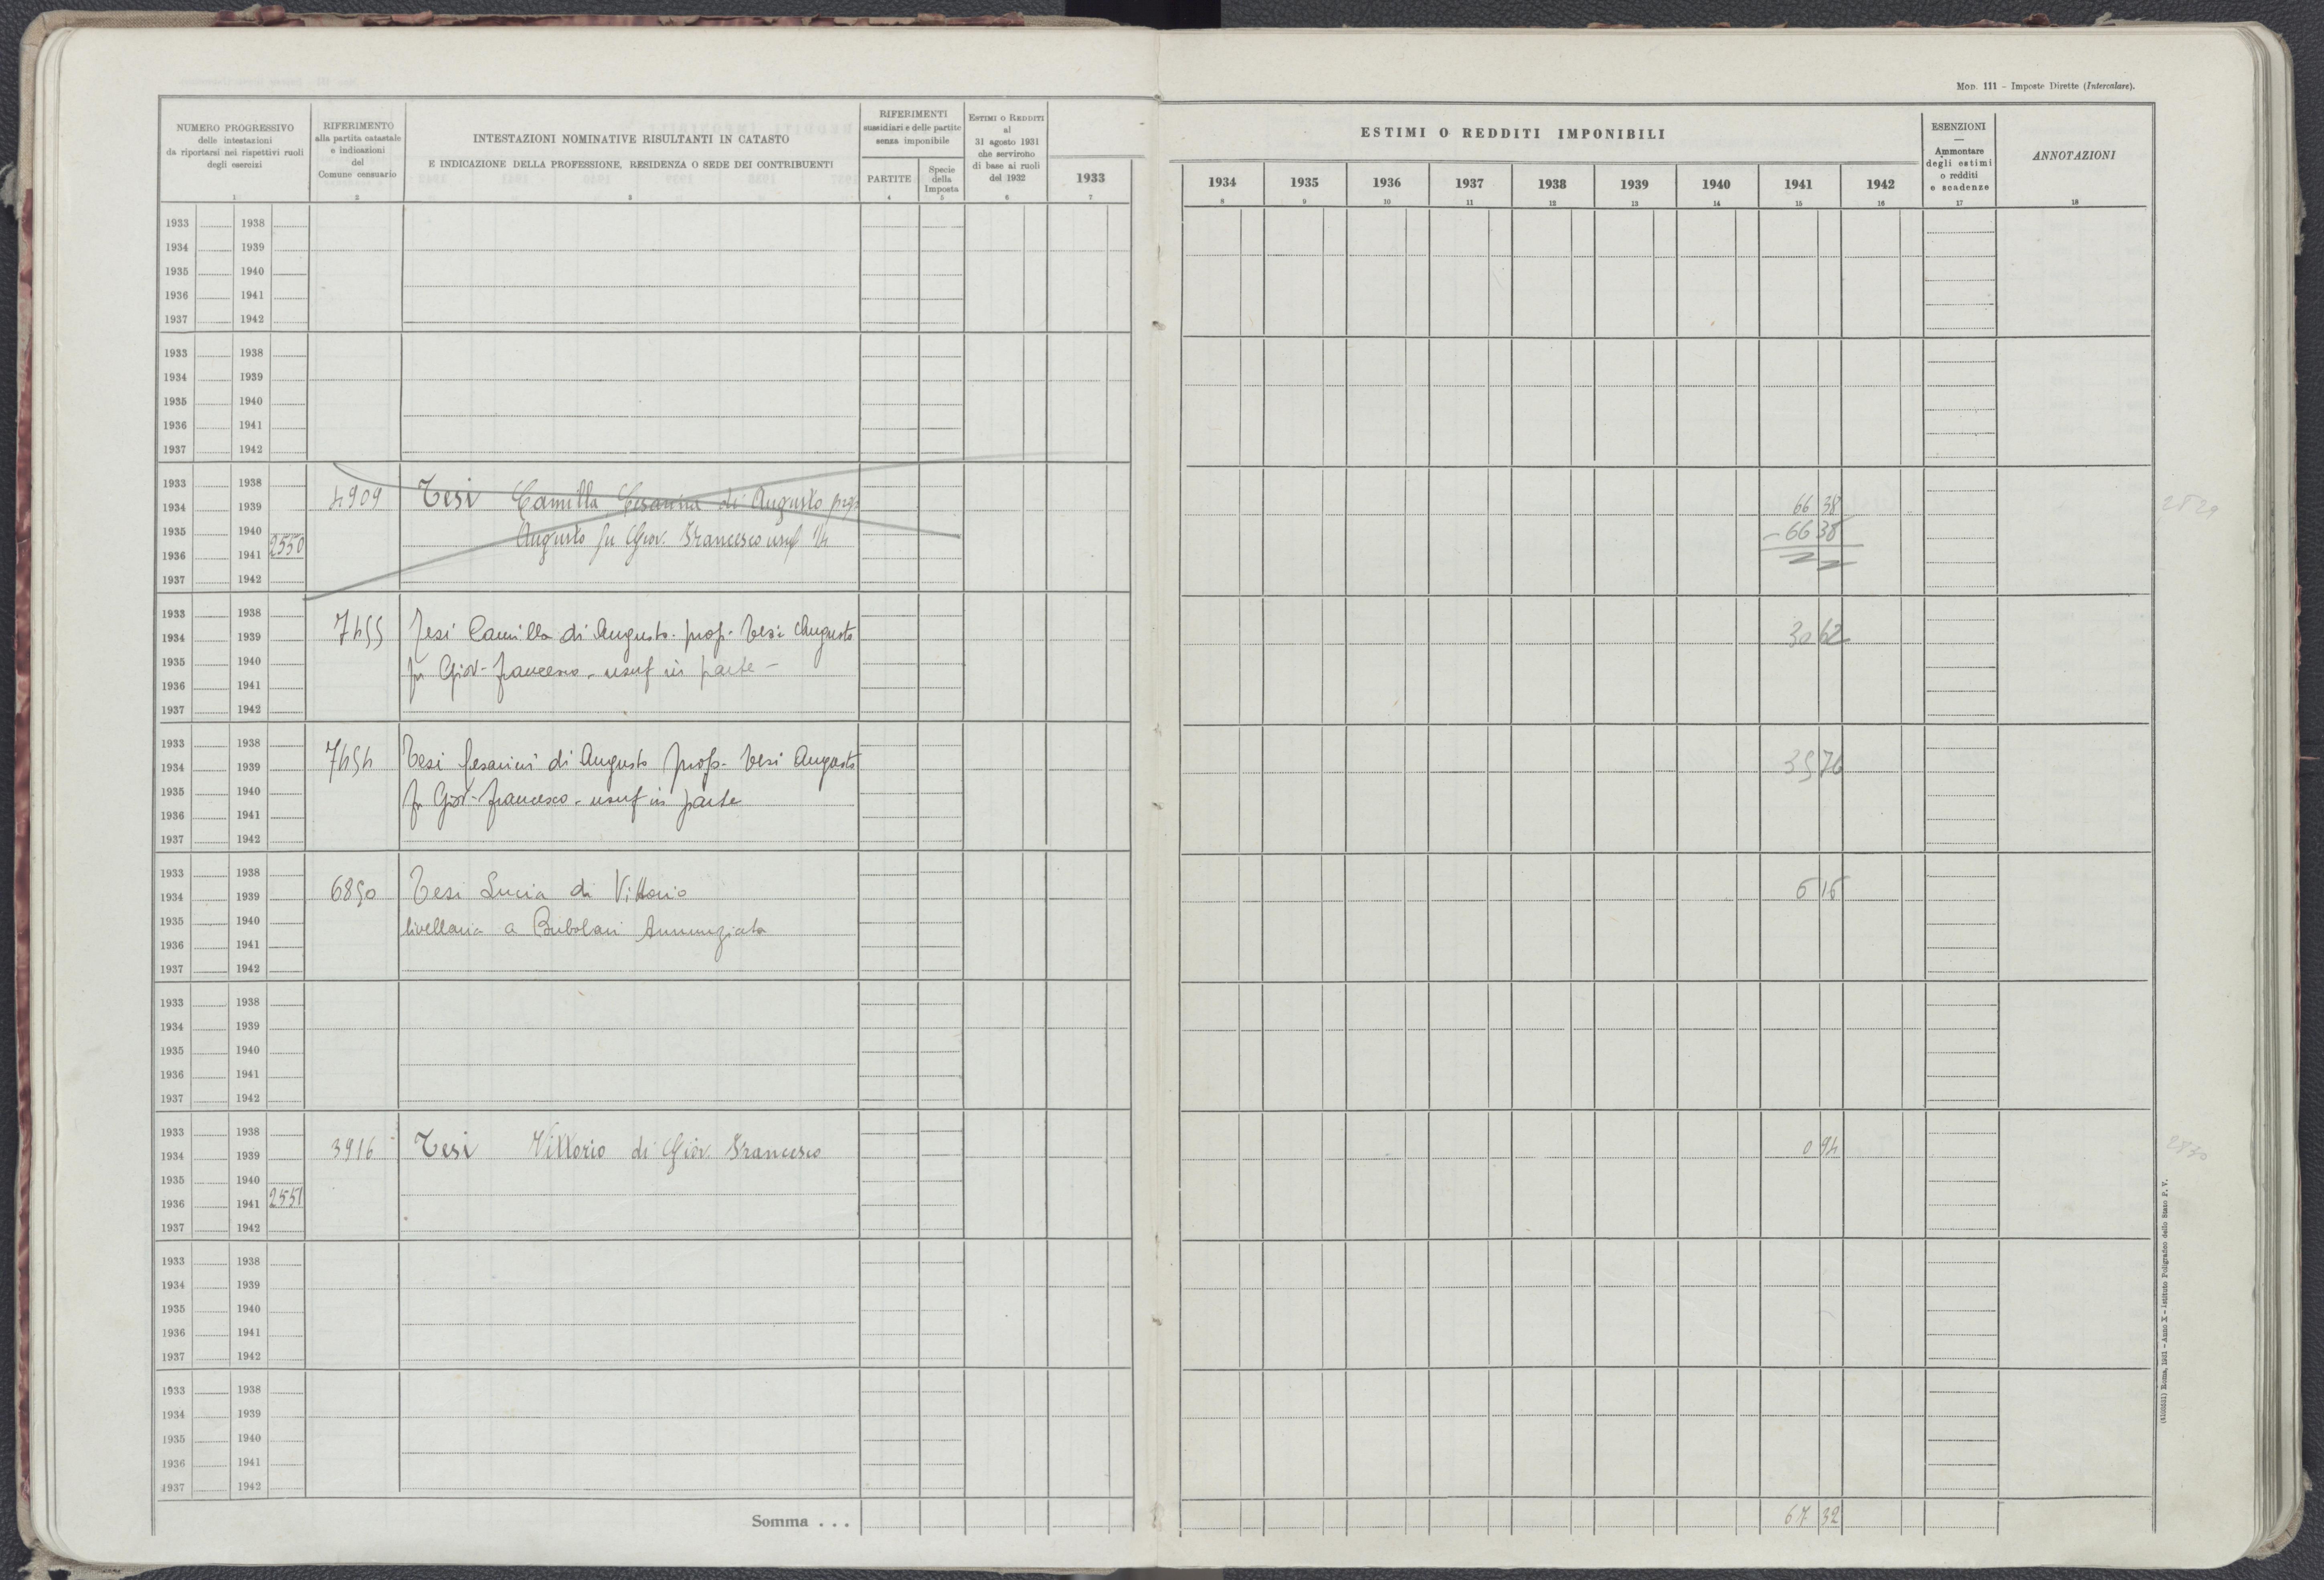 Mod. 111 – Imposte Dirette (Intercalare).
NUMERO PROGRESSIVO
delle intestazioni
da riportarsi nei rispettivi ruoli
degli esercizi
1
RIFERIMENTO
alla partita catastale
e indicazioni
del
Comune censuario
2
INTESTAZIONI NOMINATIVE RISULTANTI IN CATASTO
E INDICAZIONE DELLA PROFESSIONE, RESIDENZA O SEDE DEI CONTRIBUENTI
3
RIFERIMENTI
sussidiari e delle partite
senza imponibile
PARTITE
4
Specie
della
Imposta
5
Estimi o Redditi
al
31 agosto 1931
che servirono
di base ai ruoli
del 1932
6
1933
7
ESTIMI O REDDITI IMPONIBILI
1934 1935 1936 1937 1938 1939 1940 1941 1942
8 9 10 11 12 13 14 15 16
ESENZIONI
—
Ammontare
degli estimi
o redditi
e scadenze
17
ANNOTAZIONI
18
1933 1938
1934 1939
1935 1940
1936 1941
1937 1942
1933 1938
1934 1939
1935 1940
1936 1941
1937 1942
1933 1938
1934 1939 4909 Tesi Camilla Cesarina di Augusto prop 66 38 2529
1935 1940 Augusto fu Giov. Francesco usuf 1/4 – 66 38
1936 1941 2550
1937 1942
1933 1938
1934 1939 7455 Tesi Camilla di Augusto. prop. Tesi Augusto 30 62
1935 1940 fu Giov. Francesco. usuf in parte –
1936 1941
1937 1942
1933 1938
1934 1939 7454 Tesi Cesarina di Augusto prop. Tesi Augusto 35 76
1935 1940 fu Giov. Francesco. usuf in parte
1936 1941
1937 1942
1933 1938
1934 1939 6850 Tesi Lucia di Vittorio
1935 1940 livellaria a Bubolari Annunziata
1936 1941
1937 1942
1933 1938
1934 1939
1935 1940
1936 1941
1937 1942
1933 1938
1934 1939 3916 Tesi Vittorio di Giov. Francesco 0 94 2530
1935 1940
1936 1941 2551
1937 1942
1933 1938
1934 1939
1935 1940
1936 1941
1937 1942
1933 1938
1934 1939
1935 1940
1936 1941
1937 1942
Somma . . . 67 32
(4100551) Roma, 1931 – Anno X – Istituto Poligrafico dello Stato P. V.